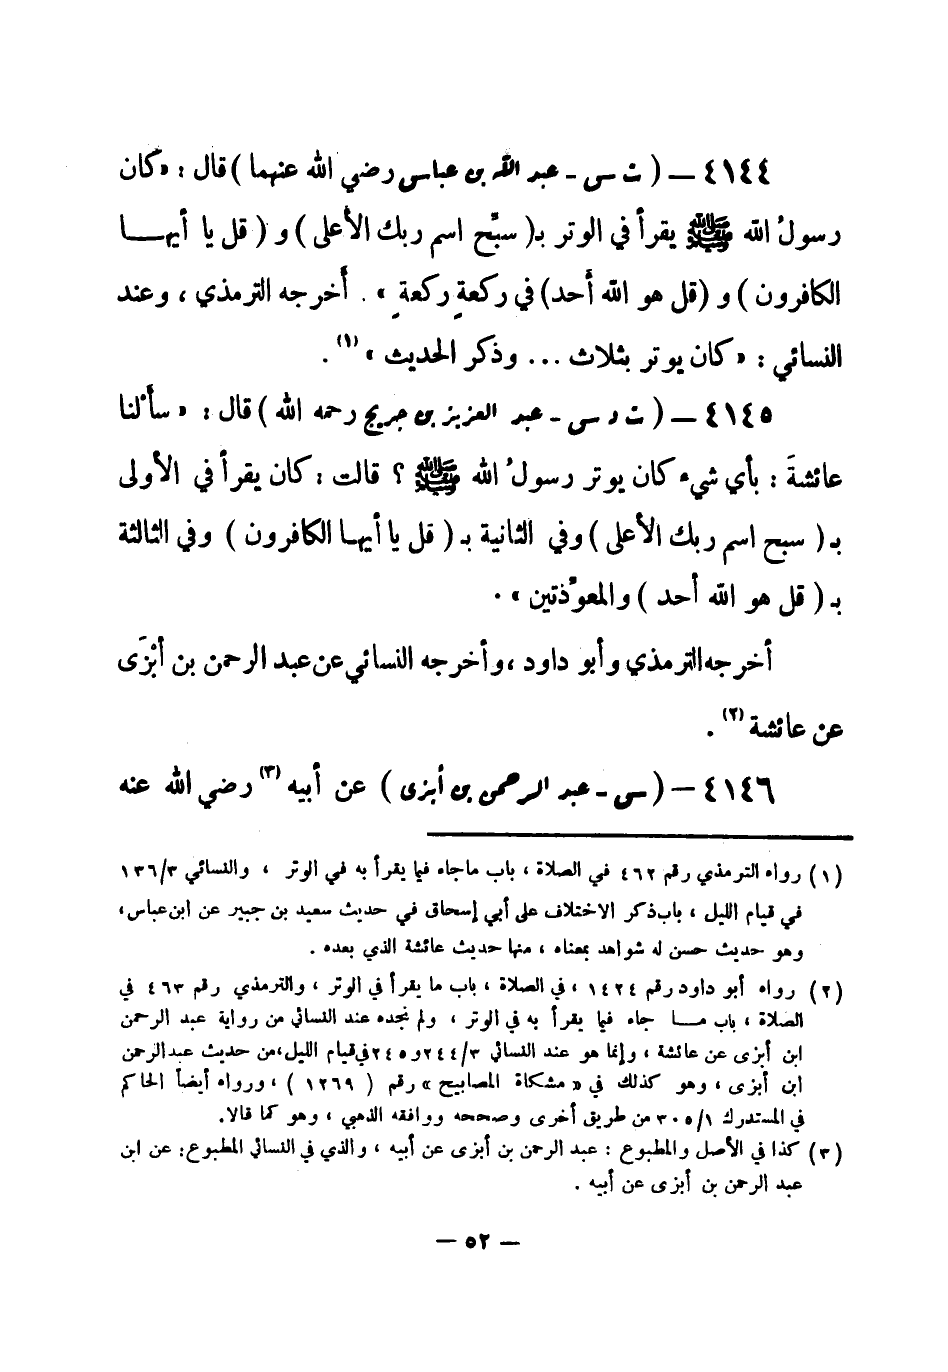 ٤١٤٤ — ( ت س - عبد الله بن عباس رضي الله عنهما ) قال : « كان
رسولُ الله ﷺ يقرأ في الوتر بـ( سبِّح اسم ربك الأعلى ) و ( قل يا أيهـــا
الكافرون ) و (قل هو الله أحد) في ركعةٍ ركعةٍ » . أخرجه الترمذي ، وعند
النسائي : « كان يوتر بثلاث ... وذكر الحديث » (١) .
٤١٤٥ — ( ت د س - عبد العزيز بن جريج رحمه الله ) قال : « سألْنا
عائشةَ : بأي شيء كان يوتر رسولُ الله ﷺ ؟ قالت : كان يقرأ في الأولى
بـ ( سبح اسم ربك الأعلى ) وفي الثانية بـ ( قل يا أيهـا الكافرون ) وفي الثالثة
بـ ( قل هو الله أحد ) والمعوِّذتين » .
أخرجه الترمذي وأبو داود ، وأخرجه النسائي عن عبد الرحمن بن أبْزَى
عن عائشة (٢) .
٤١٤٦ — ( س - عبد الرحمن بن أبزى ) عن أبيه (٣) رضي الله عنه
(١) رواه الترمذي رقم ٤٦٢ في الصلاة ، باب ماجاء فيما يقرأ به في الوتر ، والنسائي ١٣٦/٣
في قيام الليل ، باب ذكر الاختلاف على أبي إسحاق في حديث سعيد بن جبير عن ابن عباس ،
وهو حديث حسن له شواهد بمعناه ، منها حديث عائشة الذي بعده .
(٢) رواه أبو داود رقم ١٤٢٤ ، في الصلاة ، باب ما يقرأ في الوتر ، والترمذي رقم ٤٦٣ في
الصلاة ، باب مـــا جاء فيما يقرأ به في الوتر ، ولم نجده عند النسائي من رواية عبد الرحمن
ابن أبزى عن عائشة ، وإنما هو عند النسائي ٢٤٤/٣ و٢٤٥ في قيام الليل ، من حديث عبد الرحمن
ابن أبزى ، وهو كذلك في « مشكاة المصابيح » رقم ( ١٢٦٩ ) ، ورواه أيضاً الحاكم
في المستدرك ٣٠٥/١ من طريق أخرى وصححه ووافقه الذهبي ، وهو كما قالا.
(٣) كذا في الأصل والمطبوع : عبد الرحمن بن أبزى عن أبيه ، والذي في النسائي المطبوع : عن ابن
عبد الرحمن بن أبزى عن أبيه .
— ٥٢ —